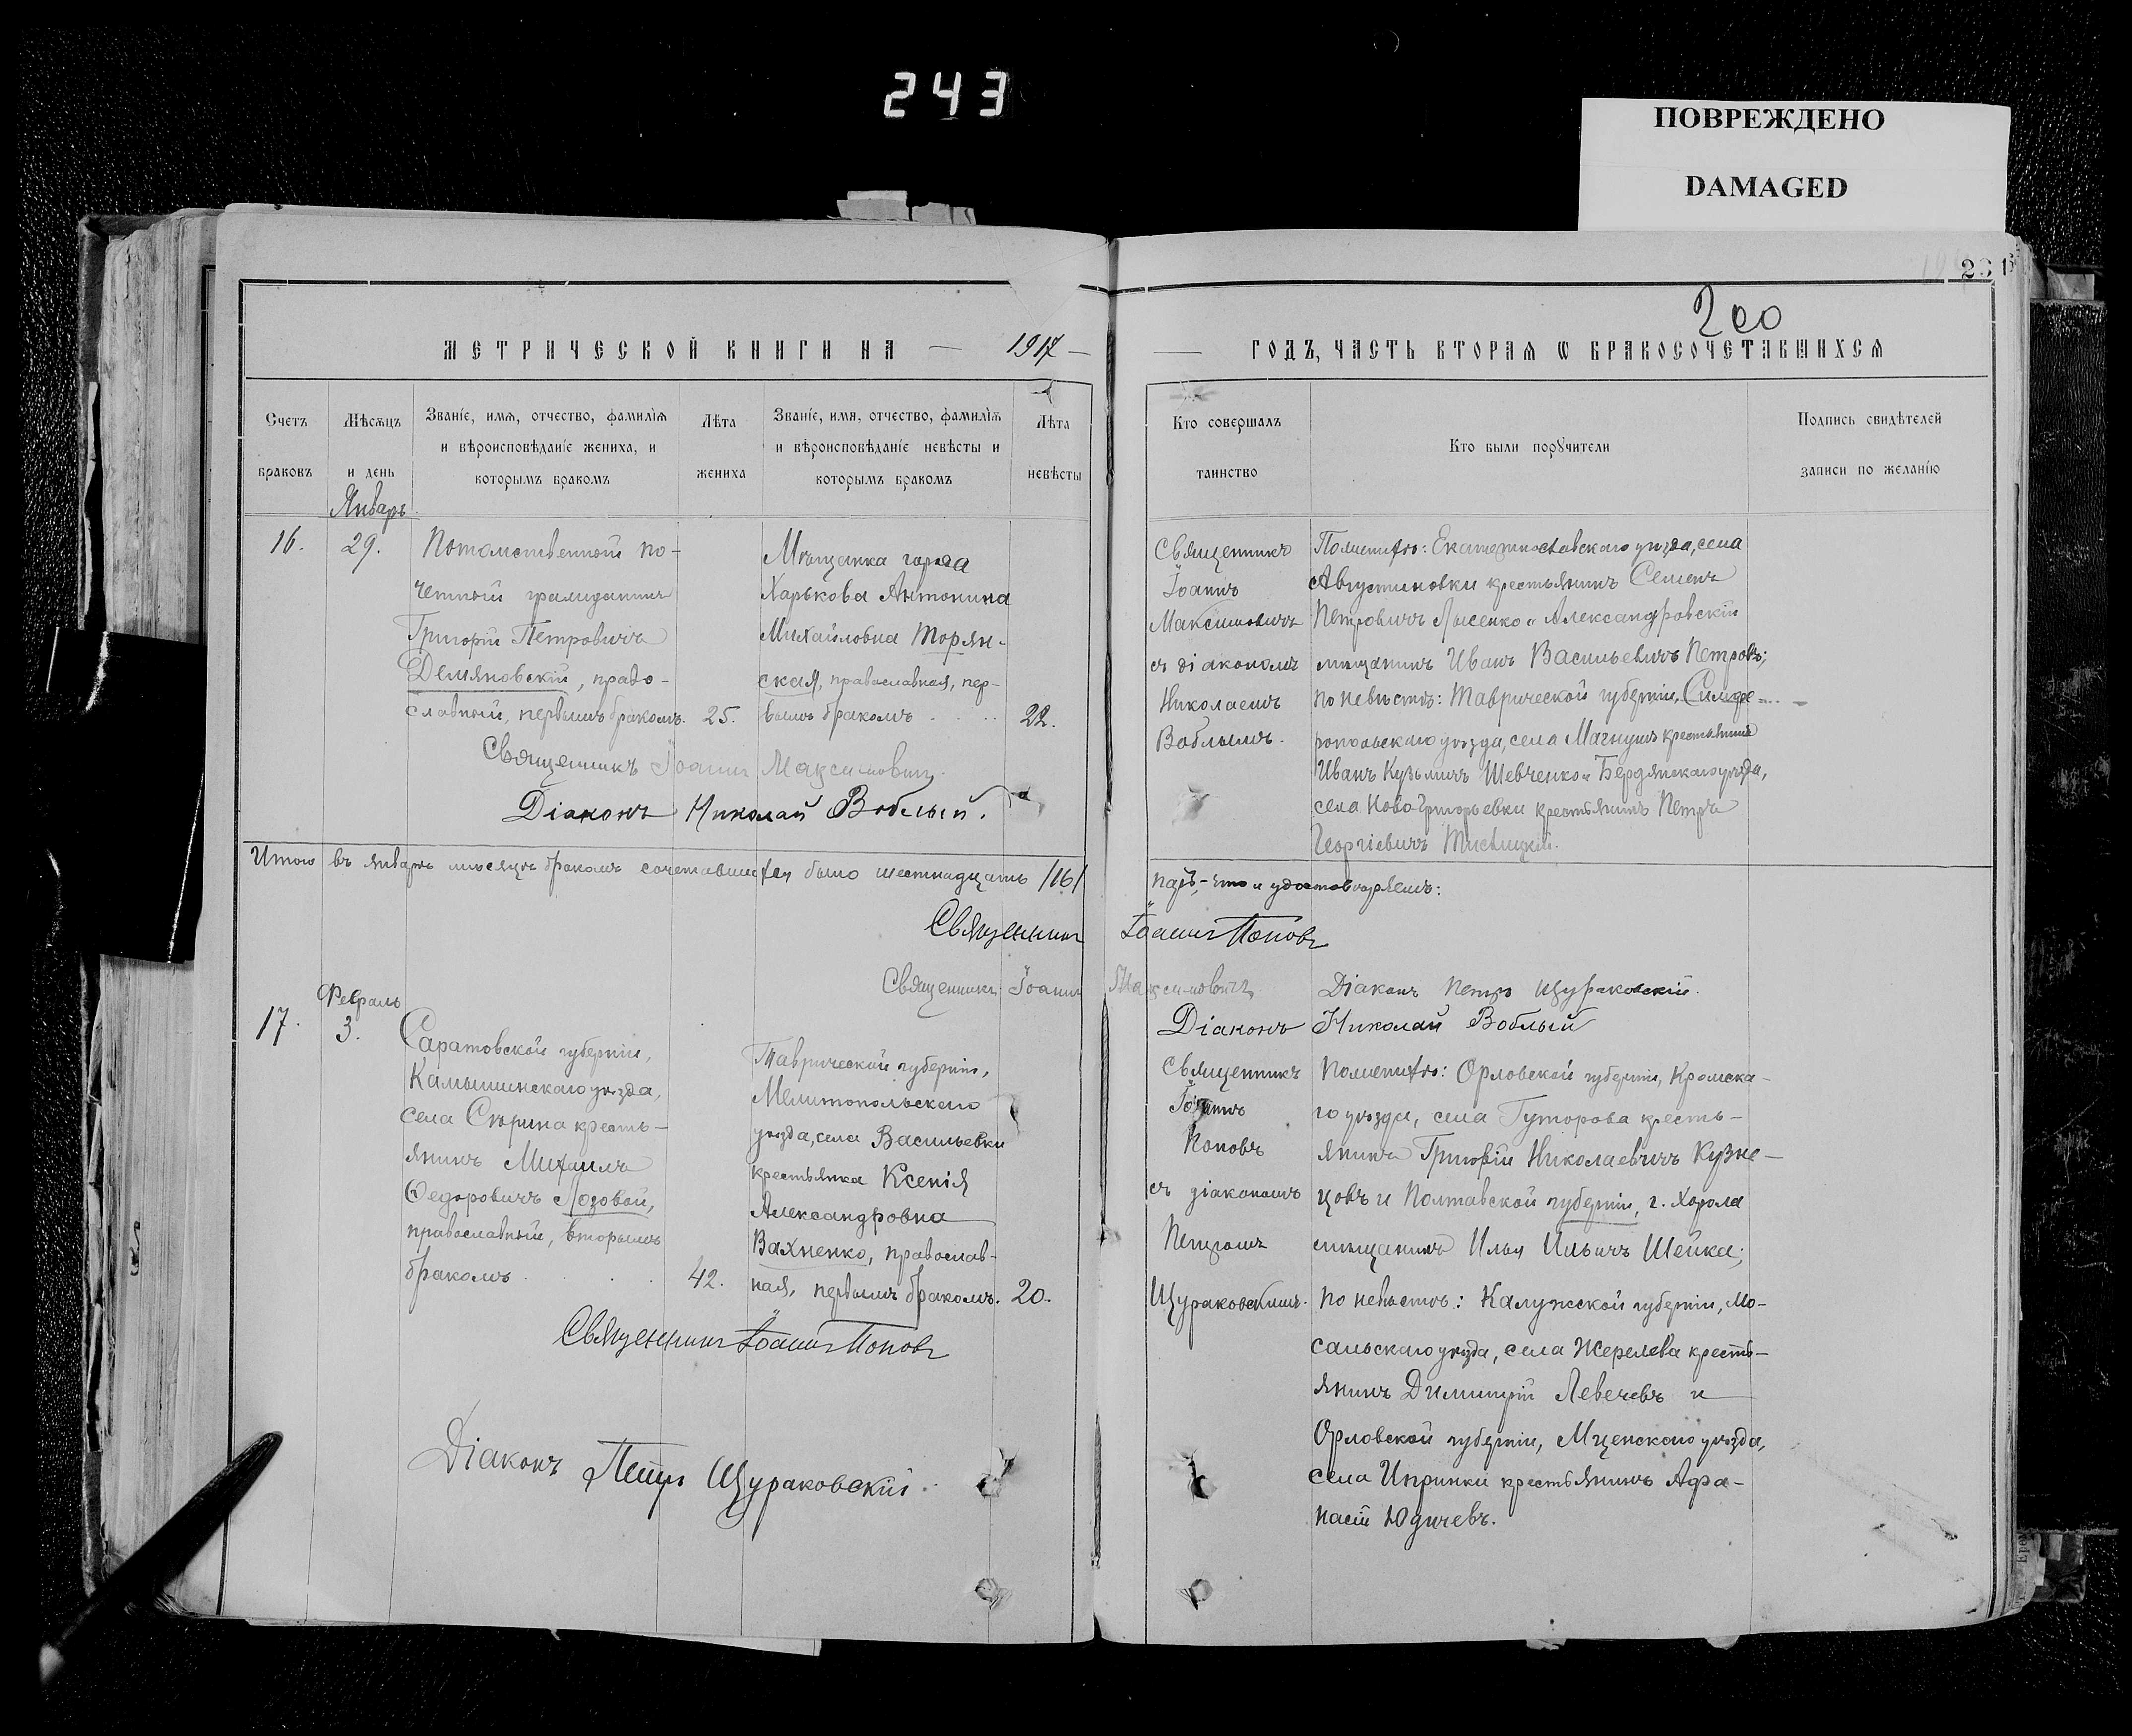 243
ПОВРЕЖДЕНО
DAMAGED
200
МЕТРИЧЕСКОЙ КНИГИ НА — 1917 —
Счетъ браковъ
Мѣсяцъ и день
Званіе, имя, отчество, фамилія
и вѣроисповѣданіе жениха, и
которымъ бракомъ
Лѣта жениха
Званіе, имя, отчество, фамилія
и вѣроисповѣданіе невѣсты и
которымъ бракомъ
Лѣта невѣсты
Январь
16.
29.
Потомственный по-
четный гражданинъ
Григорій Петровичъ
Демяновскій, право-
славный, первымъ бракомъ.
25.
Мѣщанка города
Харькова Антонина
Михайловна Торян-
ская, православная, пер-
вымъ бракомъ
22.
Священникъ Іоаннъ Максимовичъ
Діаконъ Николай Воблый.
Итого въ январѣ мѣсяцѣ бракомъ сочетавшихся было шестнадцать /16/
Священникъ
Священникъ Іоаннъ
Февраль
17.
3.
Саратовской губерніи,
Камышинскаго уѣзда,
села кресть-
янинъ Михаилъ
Ѳедоровичъ Лозовой,
православный, вторымъ
бракомъ
42.
Таврической губерніи,
Мелитопольскаго
уѣзда, села Васильевки
крестьянка Ксенія
Александровна
Вахненко, православ-
ная, первымъ бракомъ.
20.
Священникъ Іоаннъ Поповъ
Діаконъ Петръ Щураковскій.
— ГОДЪ, ЧАСТЬ ВТОРАЯ Ѡ БРАКОСОЧЕТАВШИХСЯ
Кто совершалъ
таинство
Кто были порꙋчители
Подпись свидѣтелей
записи по желанію
Священникъ
Іоаннъ
Максимовичъ
съ діакономъ
Николаемъ
Воблымъ.
По женихѣ: Екатеринославскаго уѣзда, села
Августиновки крестьянинъ Семенъ
Петровичъ Лысенко и Александровскій
мѣщанинъ Иванъ Васильевичъ Петровъ;
По невѣстѣ: Таврической губерніи, Симфе-
ропольскаго уѣзда, села крестьянинъ
Иванъ Кузьмичъ Шевченко и Бердянскаго уѣзда,
села Ново-Григорьевки крестьянинъ Петръ
Георгіевичъ
паръ, — что и удостовѣряемъ:
Іоаннъ Поповъ
Максимовичъ
Діаконъ Петръ Щураковскій.
Діаконъ Николай Воблый
Священникъ
Іоаннъ
Поповъ
съ діакономъ
Петромъ
Щураковскимъ.
По женихѣ: Орловской губерніи, Кромска-
го уѣзда, села Гуторова кресть-
янинъ Григорій Николаевичъ Кузне-
цовъ и Полтавской губерніи, г. Хорола
мѣщанинъ Илья Ильичъ Шейка;
По невѣстѣ: Калужской губерніи, Мо-
сальскаго уѣзда, села Жерелева кресть-
янинъ Димитрій Левечевъ и
Орловской губерніи, Мценскаго уѣзда,
села крестьянинъ Афа-
насій Юдичевъ.